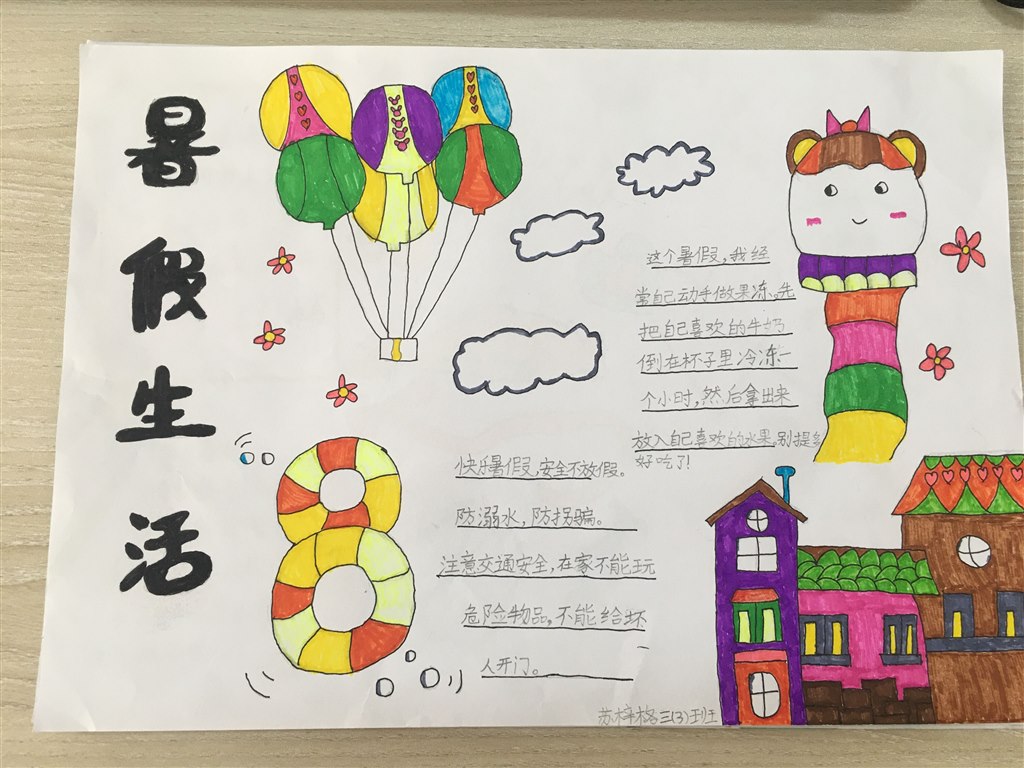 暑假生活
这个暑假,我经
常自己动手做果冻。先
把自己喜欢的牛奶
倒在杯子里冷冻一
个小时,然后拿出来
放入自己喜欢的水果,别提多
好吃了!
快乐暑假,安全不放假。
防溺水,防拐骗。
注意交通安全,在家不能玩
危险物品,不能给坏
人开门。
苏梓格三(3)班